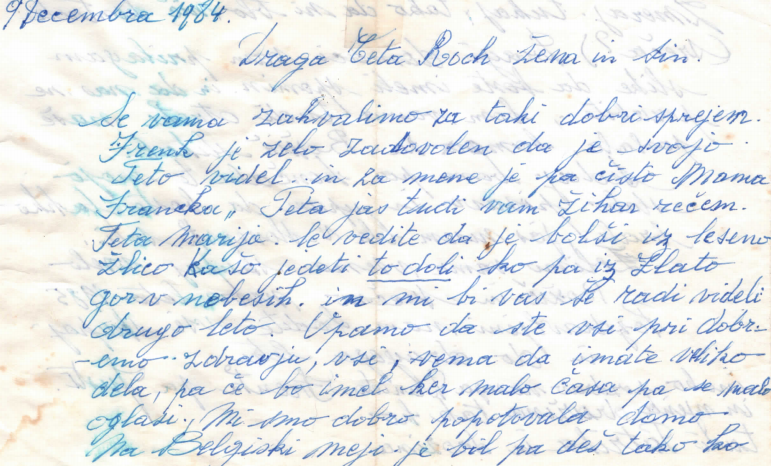 9 Decembra 1984.
Draga Teta Roch žena in sin.
Se vama zahvalimo za taki dobri sprejem.
Frenk je zelo zadovolen da je svojo
Teto videl in za mene je pa čisto Mama
Francka„ Teta jas tudi vam žihar rečem.
Teta Marija. le vedite da je bolši iz leseno
žlico Kašo jedeti to doli ko pa iz Zlato
gor v nebesih. in mi bi vas še radi videli
drugo leto. Upamo da ste vsi pri dobr-
emo zdravju, vsi, vema da imate veliko
dela, pa če bo imel ker malo časa pa se malo
oglasi, Mi smo dobro popotovala domo
Na Belgiski meji je bil pa deš tako ko